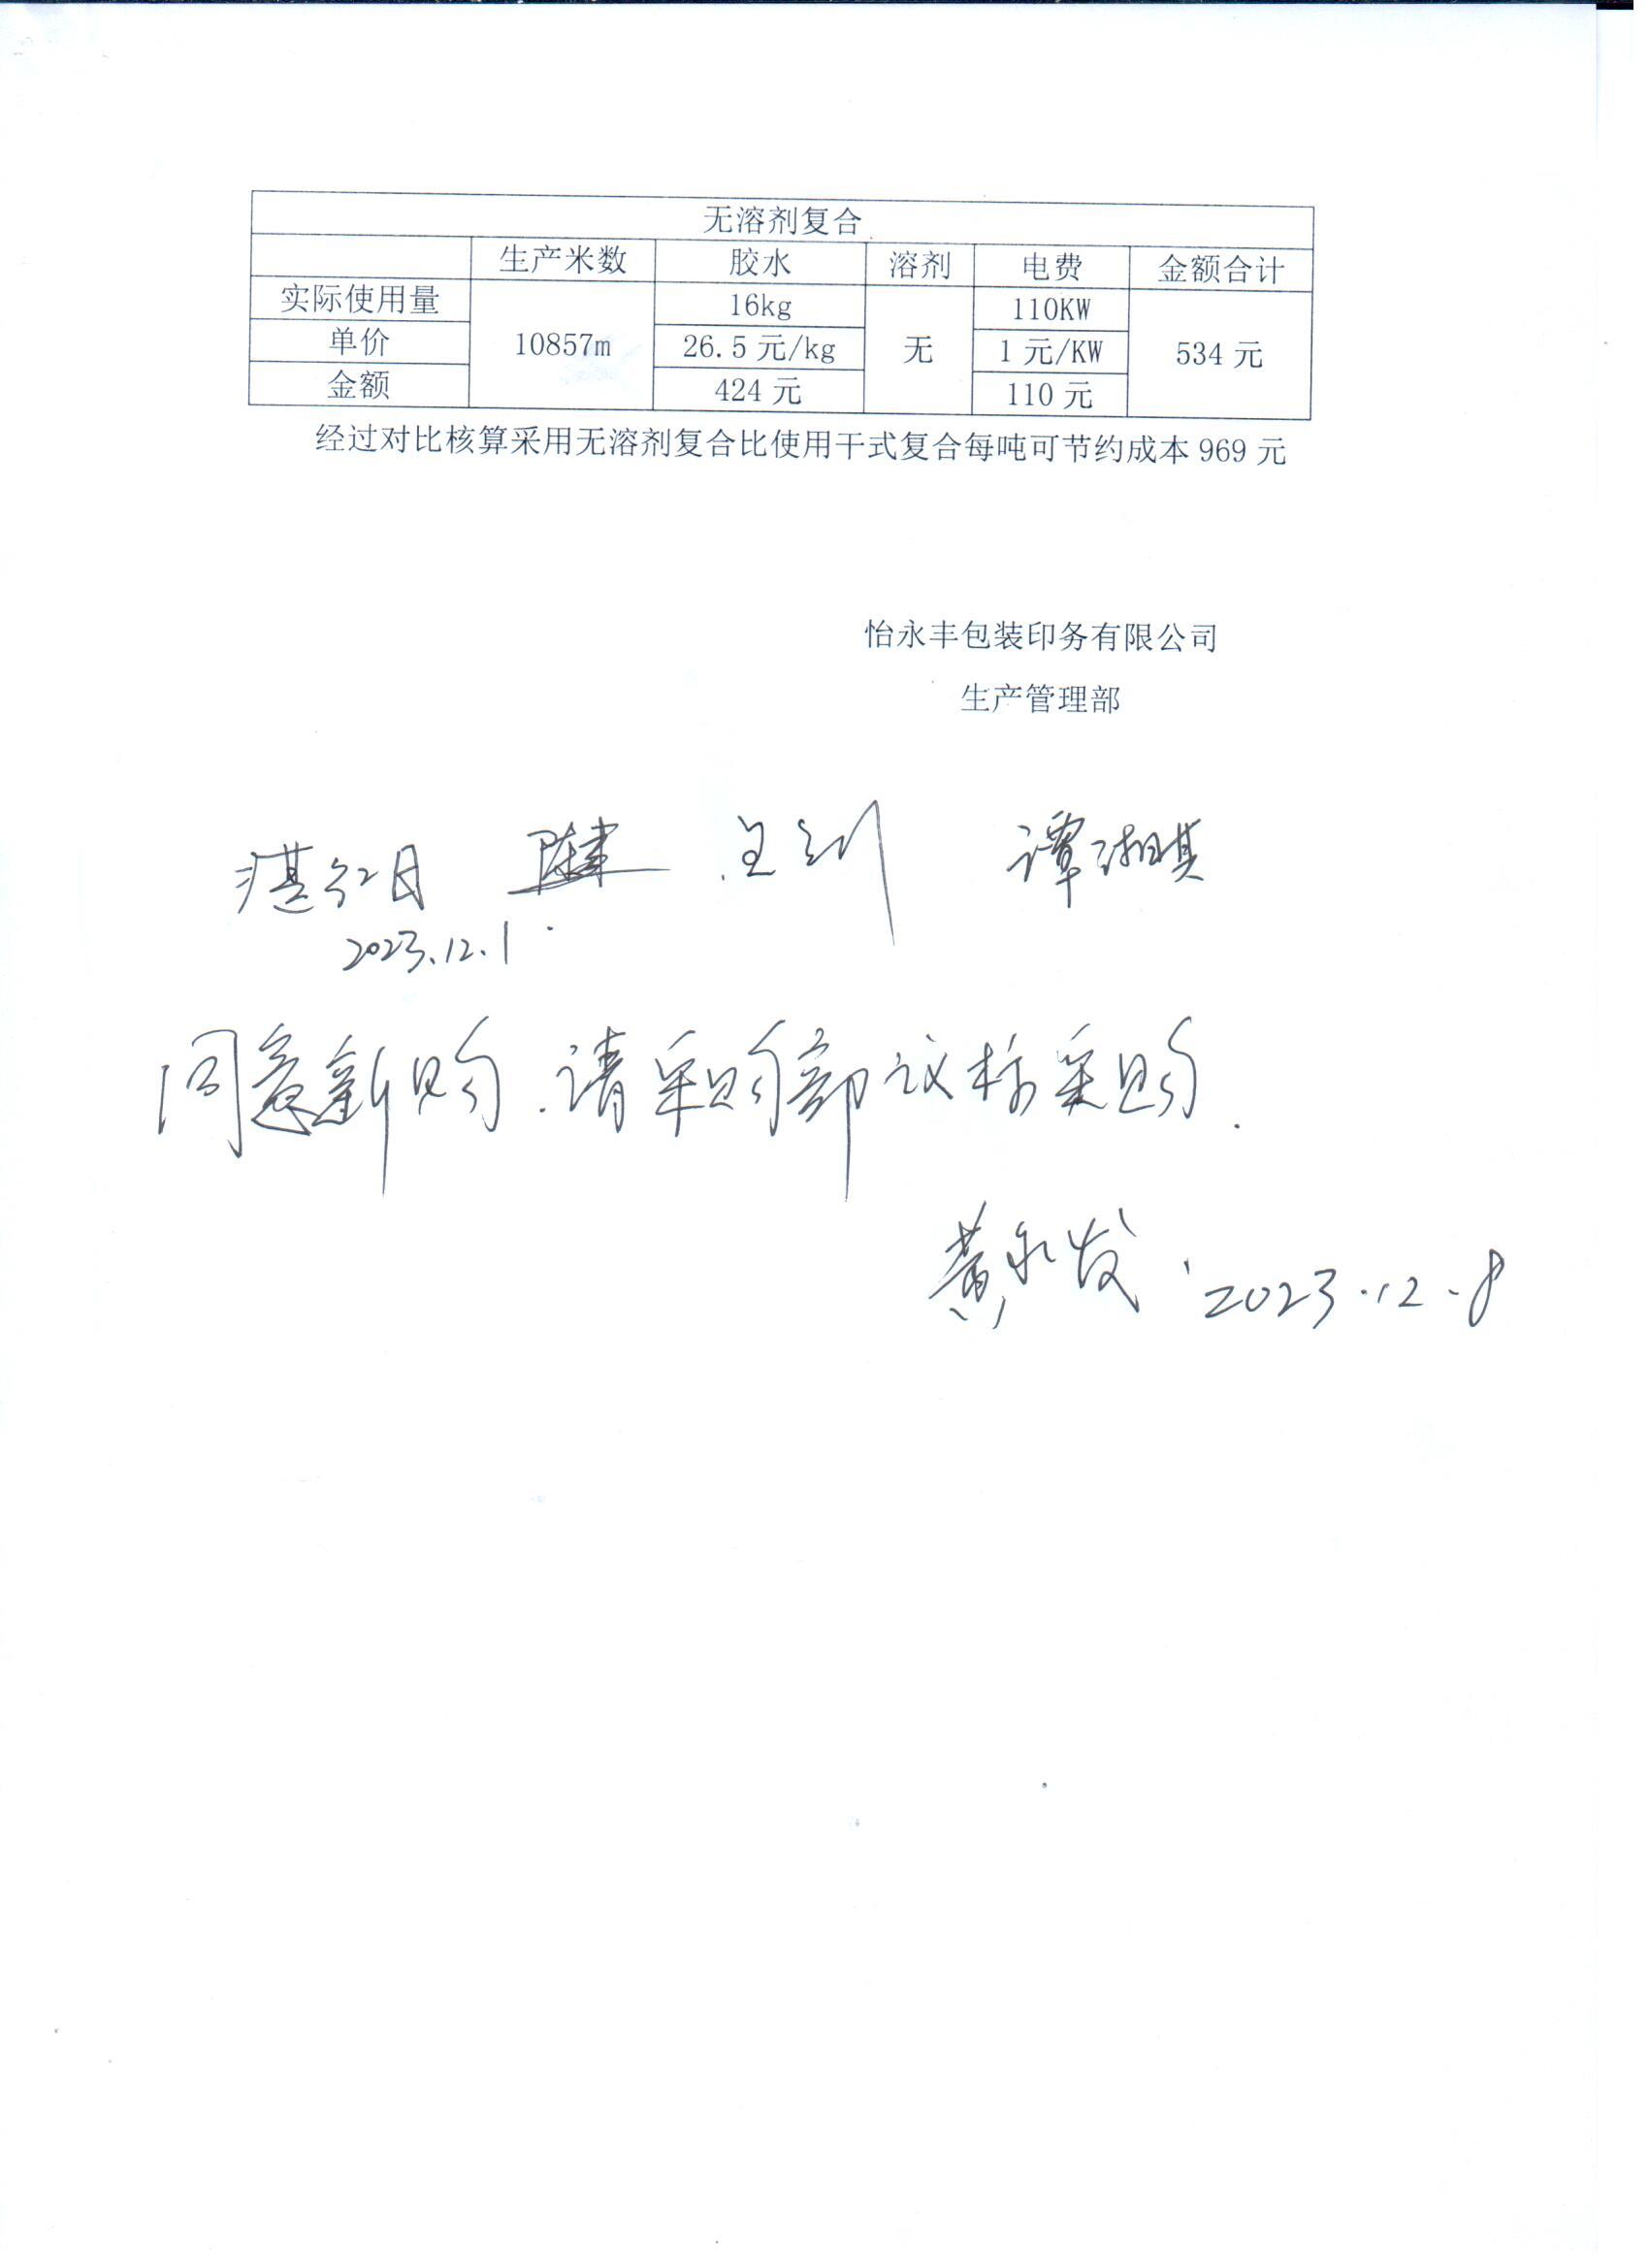 无溶剂复合
生产米数 胶水 溶剂 电费 金额合计
实际使用量 16kg 110KW
单价 10857m 26.5元/kg 无 1元/KW 534元
金额 424元 110元
经过对比核算采用无溶剂复合比使用干式复合每吨可节约成本969元
怡永丰包装印务有限公司
生产管理部
湛红日 谭湘琪
2023.12.1
同意新购.请采购部议标采购.
黄永发 2023.12.8